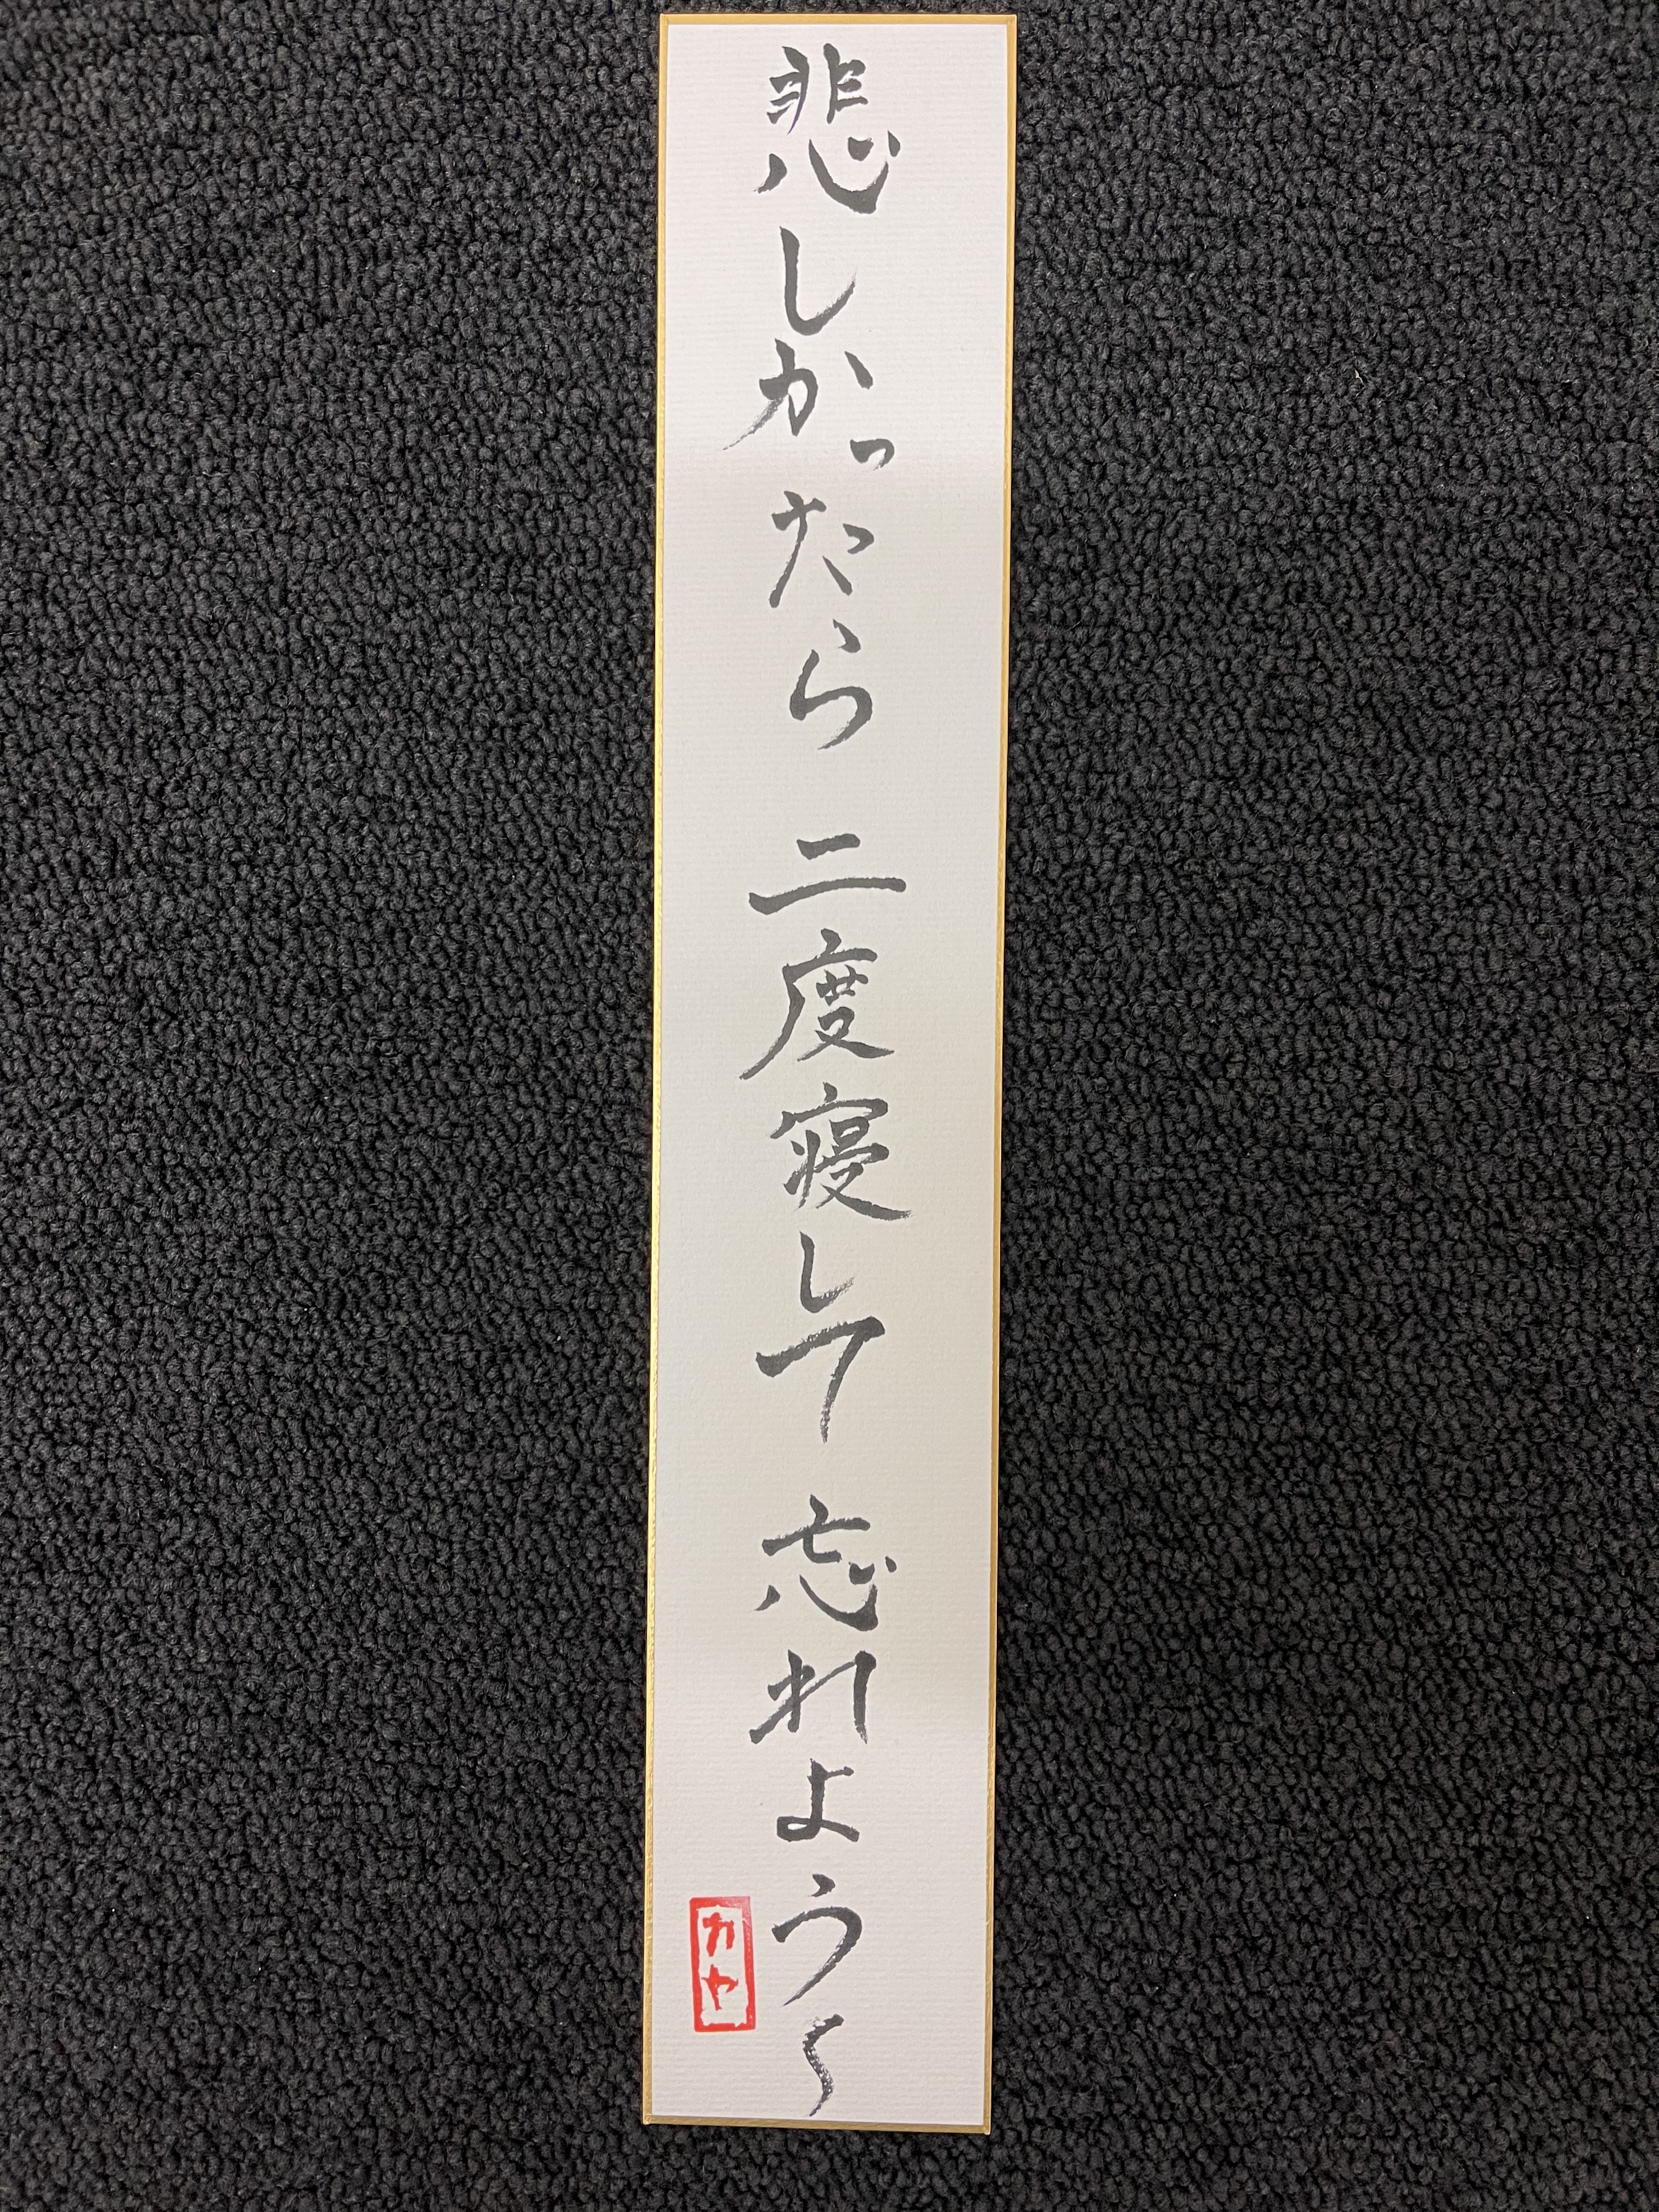 悲しかったら 二度寝して 忘れよう〜
カヤ